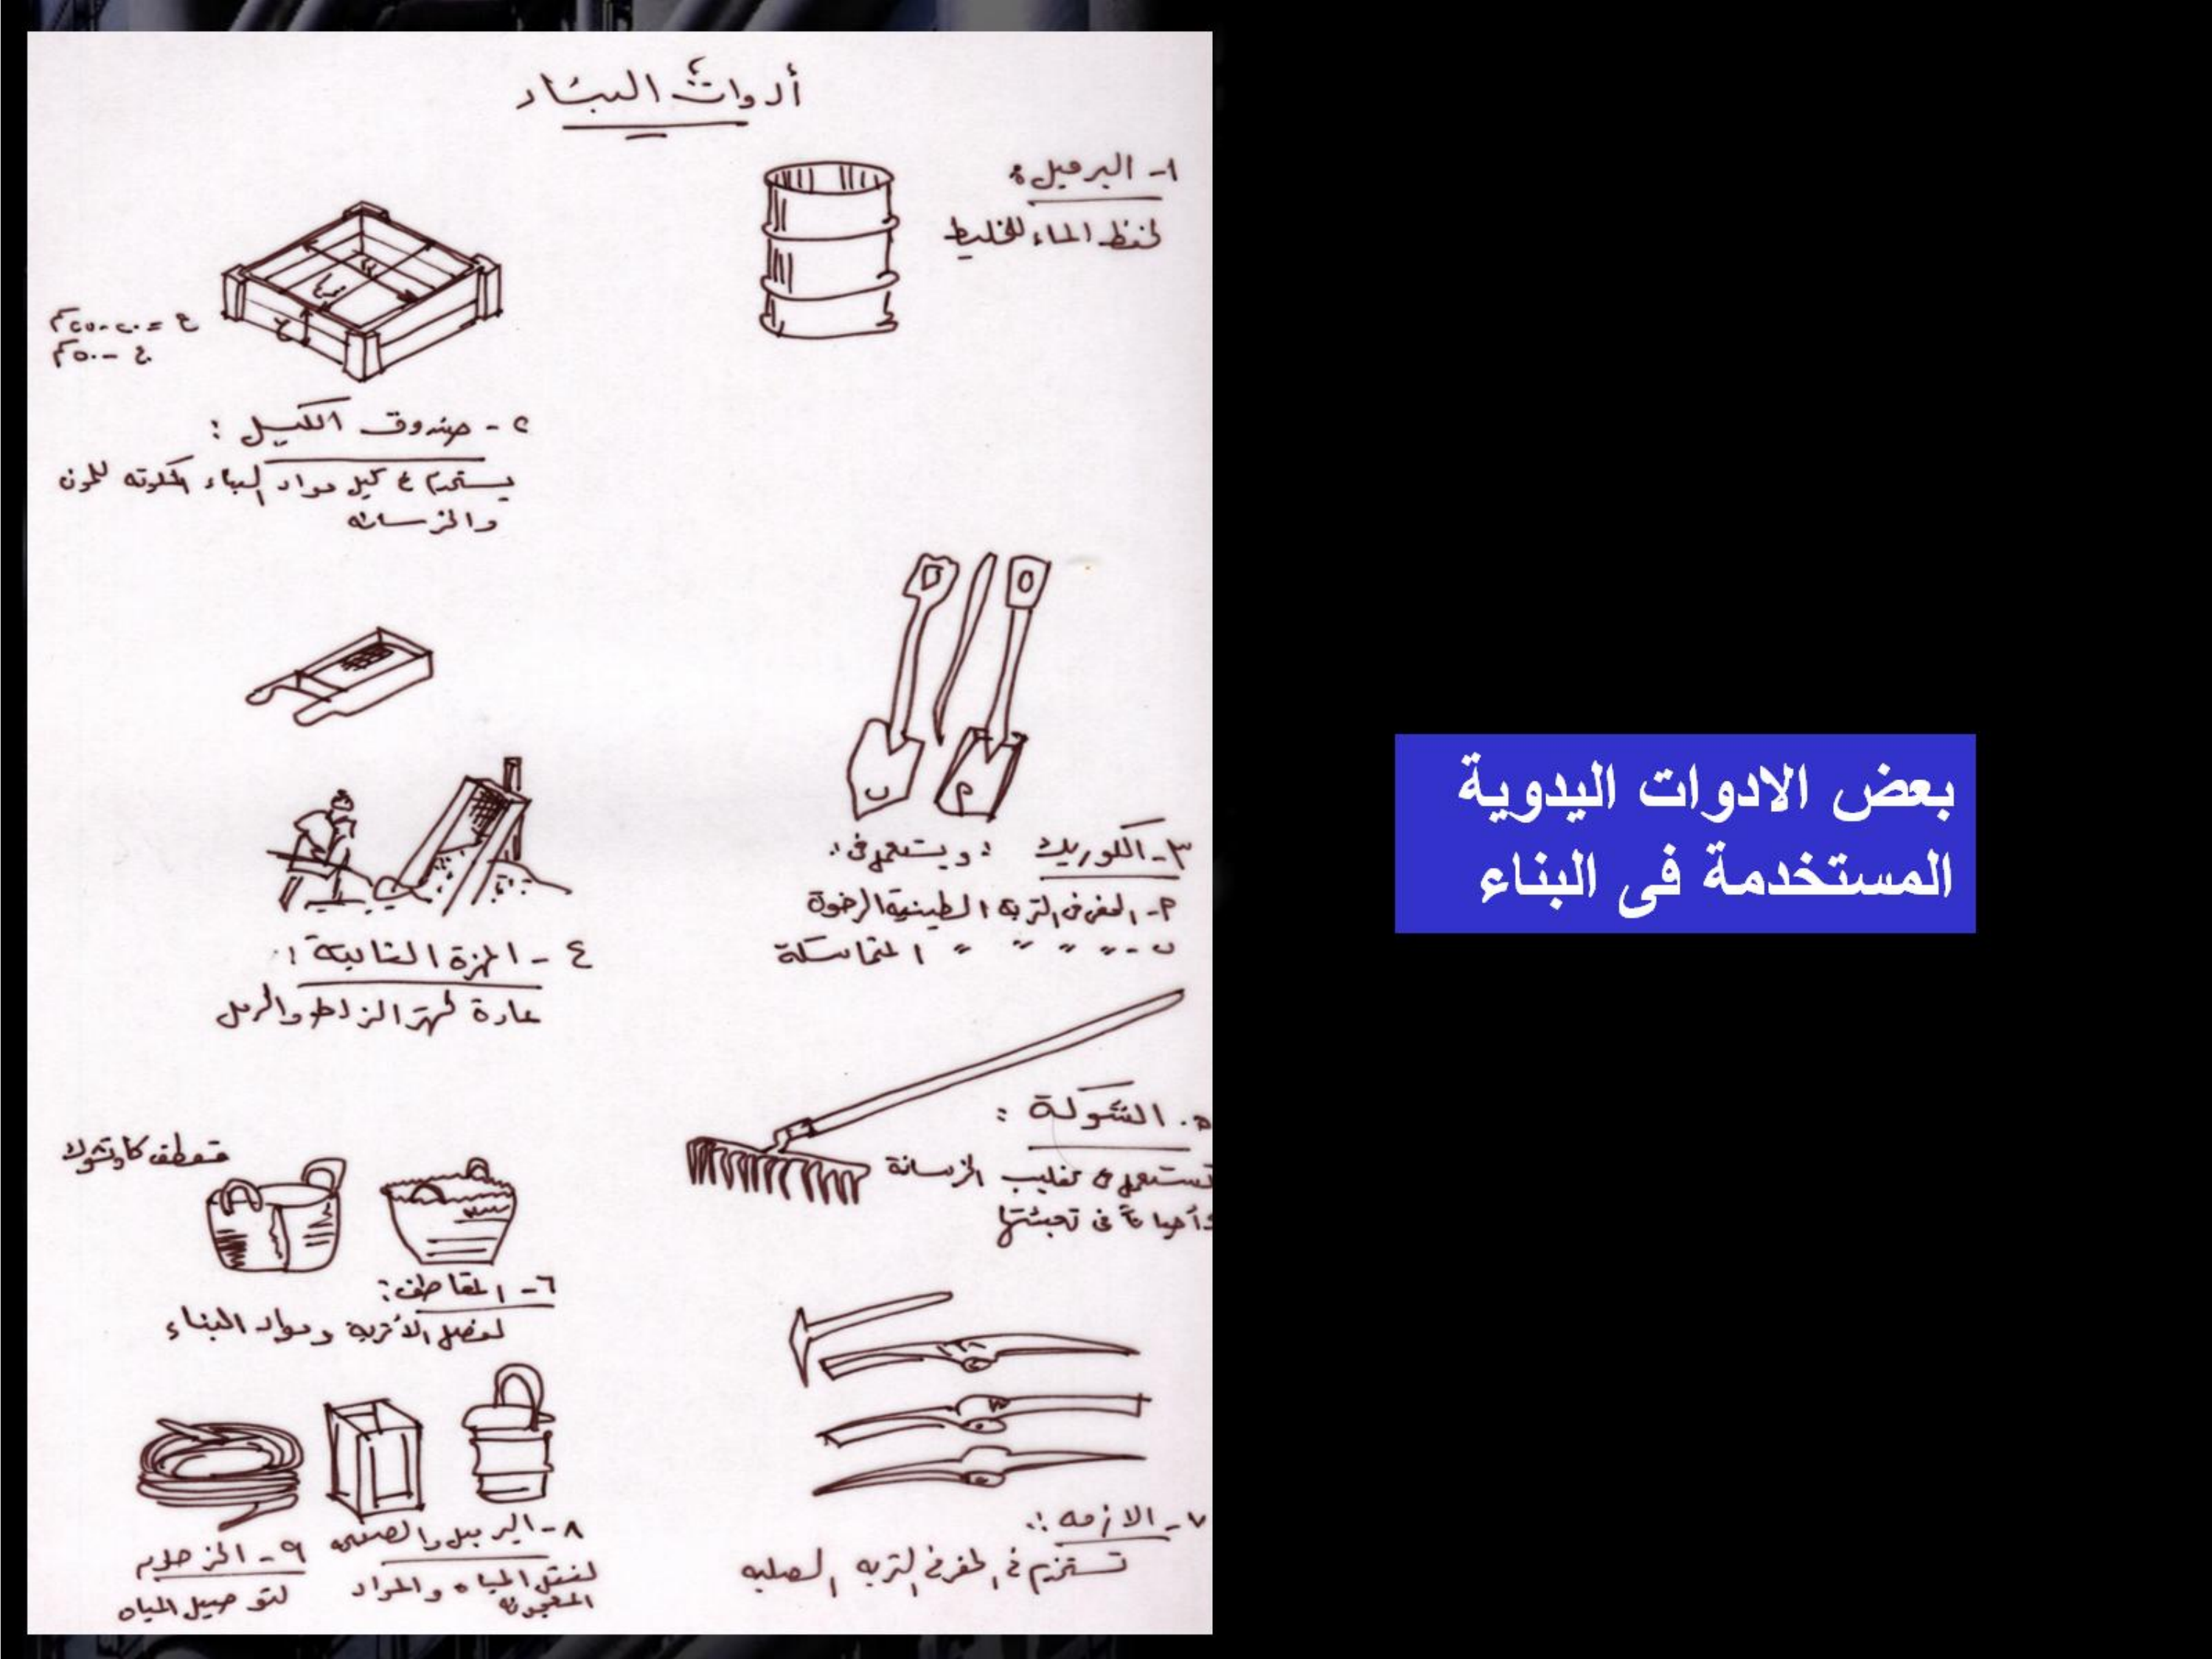 أدوات البناء
١- البرميل:
لحفظ الماء للخليط
ع = ٢٠-٢٥سم
ع - ٥٠سم
٢- صندوق الكيل:
يستخدم ع كيل مواد البناء المكونه للمون
والخرسانه
٣- الكوريك : ويستعمل فى:
٩- الحفر فى التربة الطينية الرخوة
ب- " " " " المتماسكة
٤- المهزة الثابتة:
عادة لهز الزلط والرمل
٥. الشوكة:
تستعمل فى تقليب الخرسانة
وأحياناً فى تعبئتها
مقطف كاوتشوك
٦- المقاطف:
لنقل الأتربة ومواد البناء
٧- الازمه:
تستخدم فى الحفر فى التربه الصلبه
٨- البرميل والصفيحه
لنقل المياه والمواد
المعجونه
٩- الخرطوم
لتوصيل المياه
بعض الادوات اليدوية
المستخدمة فى البناء